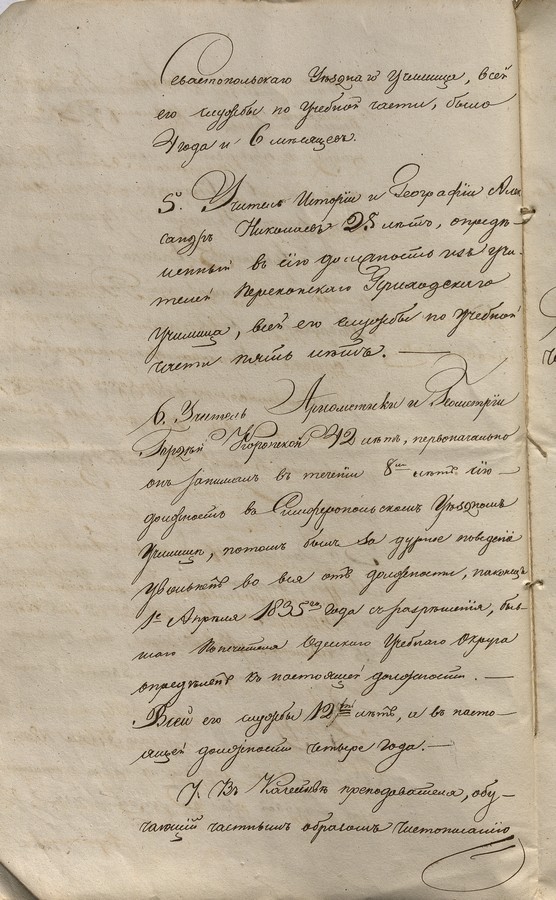 Севастопольскаго Уѣзднаго Училища, всей
его службы по учебной части, было
4 года и 6 мѣсяцевъ.
5. Учитель Исторіи и Географіи Алек
сандръ Николаевъ 25 лѣтъ, опредѣ-
ленный въ сію должность изъ учи-
телей Перекопскаго Приходскаго
Училища, всей его службы по учебной
части пять лѣтъ. —
6. Учитель Арифметики и Геометріи
42 лѣтъ, первоначально
онъ занималъ въ теченіи 8ми лѣтъ сію
должность въ Симферопольскомъ Уѣздномъ
Училищѣ, потомъ былъ за дурное поведеніе
уволенъ во вся отъ должности, наконецъ
1е Апрѣля 1835го года съ разрѣшенія, быв-
шаго Попечителя Одескаго Учебнаго Округа
опредѣленъ къ настоящей должности. —
Всей его службы 12ть лѣтъ, а въ насто-
ящей должности четыре года. —
7. Въ преподавателя, обу-
чающій частнымъ образомъ чистописанію